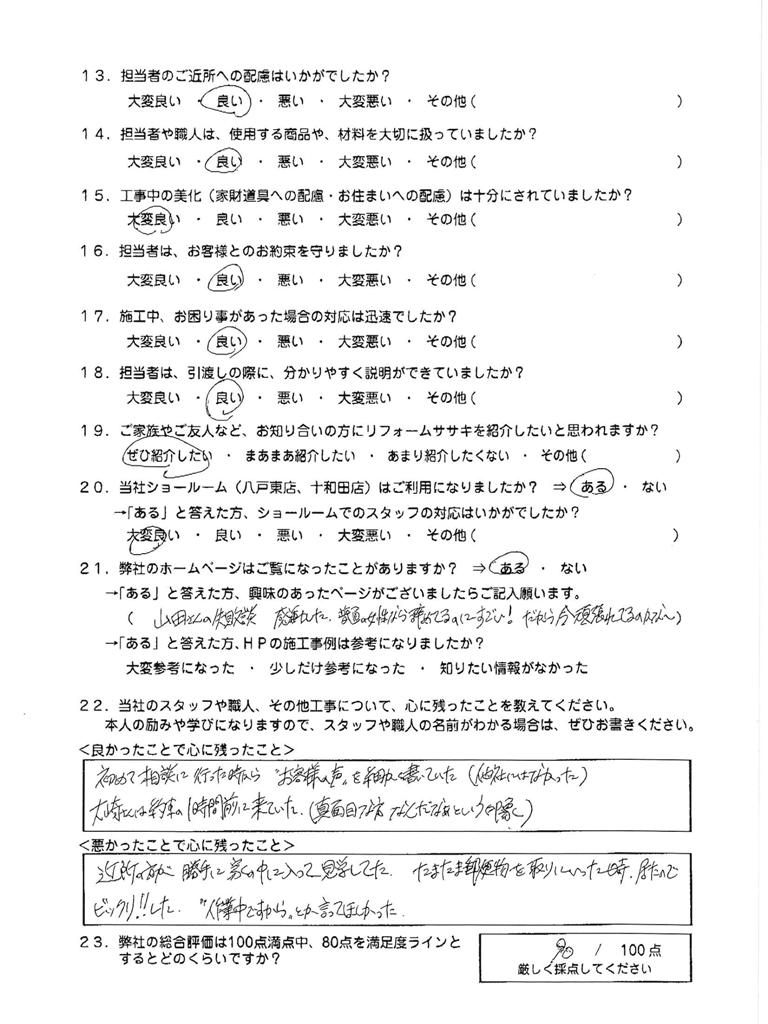 13．担当者のご近所への配慮はいかがでしたか？
大変良い ・ 良い ・ 悪い ・ 大変悪い ・ その他（ ）
14．担当者や職人は、使用する商品や、材料を大切に扱っていましたか？
大変良い ・ 良い ・ 悪い ・ 大変悪い ・ その他（ ）
15．工事中の美化（家財道具への配慮・お住まいへの配慮）は十分にされていましたか？
大変良い ・ 良い ・ 悪い ・ 大変悪い ・ その他（ ）
16．担当者は、お客様とのお約束を守りましたか？
大変良い ・ 良い ・ 悪い ・ 大変悪い ・ その他（ ）
17．施工中、お困り事があった場合の対応は迅速でしたか？
大変良い ・ 良い ・ 悪い ・ 大変悪い ・ その他（ ）
18．担当者は、引渡しの際に、分かりやすく説明ができていましたか？
大変良い ・ 良い ・ 悪い ・ 大変悪い ・ その他（ ）
19．ご家族やご友人など、お知り合いの方にリフォームササキを紹介したいと思われますか？
ぜひ紹介したい ・ まあまあ紹介したい ・ あまり紹介したくない ・ その他（ ）
20．当社ショールーム（八戸東店、十和田店）はご利用になりましたか？ ⇒ ある ・ ない
→「ある」と答えた方、ショールームでのスタッフの対応はいかがでしたか？
大変良い ・ 良い ・ 悪い ・ 大変悪い ・ その他（ ）
21．弊社のホームページはご覧になったことがありますか？ ⇒ ある ・ ない
→「ある」と答えた方、興味のあったページがございましたらご記入願います。
（ 山田さんの失敗談 普通の女性なら辞めてるのにすごい！だから今頑張れてるのかな～）
→「ある」と答えた方、HPの施工事例は参考になりましたか？
大変参考になった ・ 少しだけ参考になった ・ 知りたい情報がなかった
22．当社のスタッフや職人、その他工事について、心に残ったことを教えてください。
本人の励みや学びになりますので、スタッフや職人の名前がわかる場合は、ぜひお書きください。
<良かったことで心に残ったこと>
初めて相談に行った時から "お客様の声"を細かく書いていた（他社にはなかった）
大崎さんは約束の1時間前に来ていた。（真面目な方なんだなぁという印象）
<悪かったことで心に残ったこと>
近所の方が勝手に家の中に入って見学してた。たまたま郵便物を取りにいった時、居たので
ビックリ!!した。"作業中ですから"とか言ってほしかった。
23．弊社の総合評価は100点満点中、80点を満足度ラインと
するとどのくらいですか？
90 / 100点
厳しく採点してください